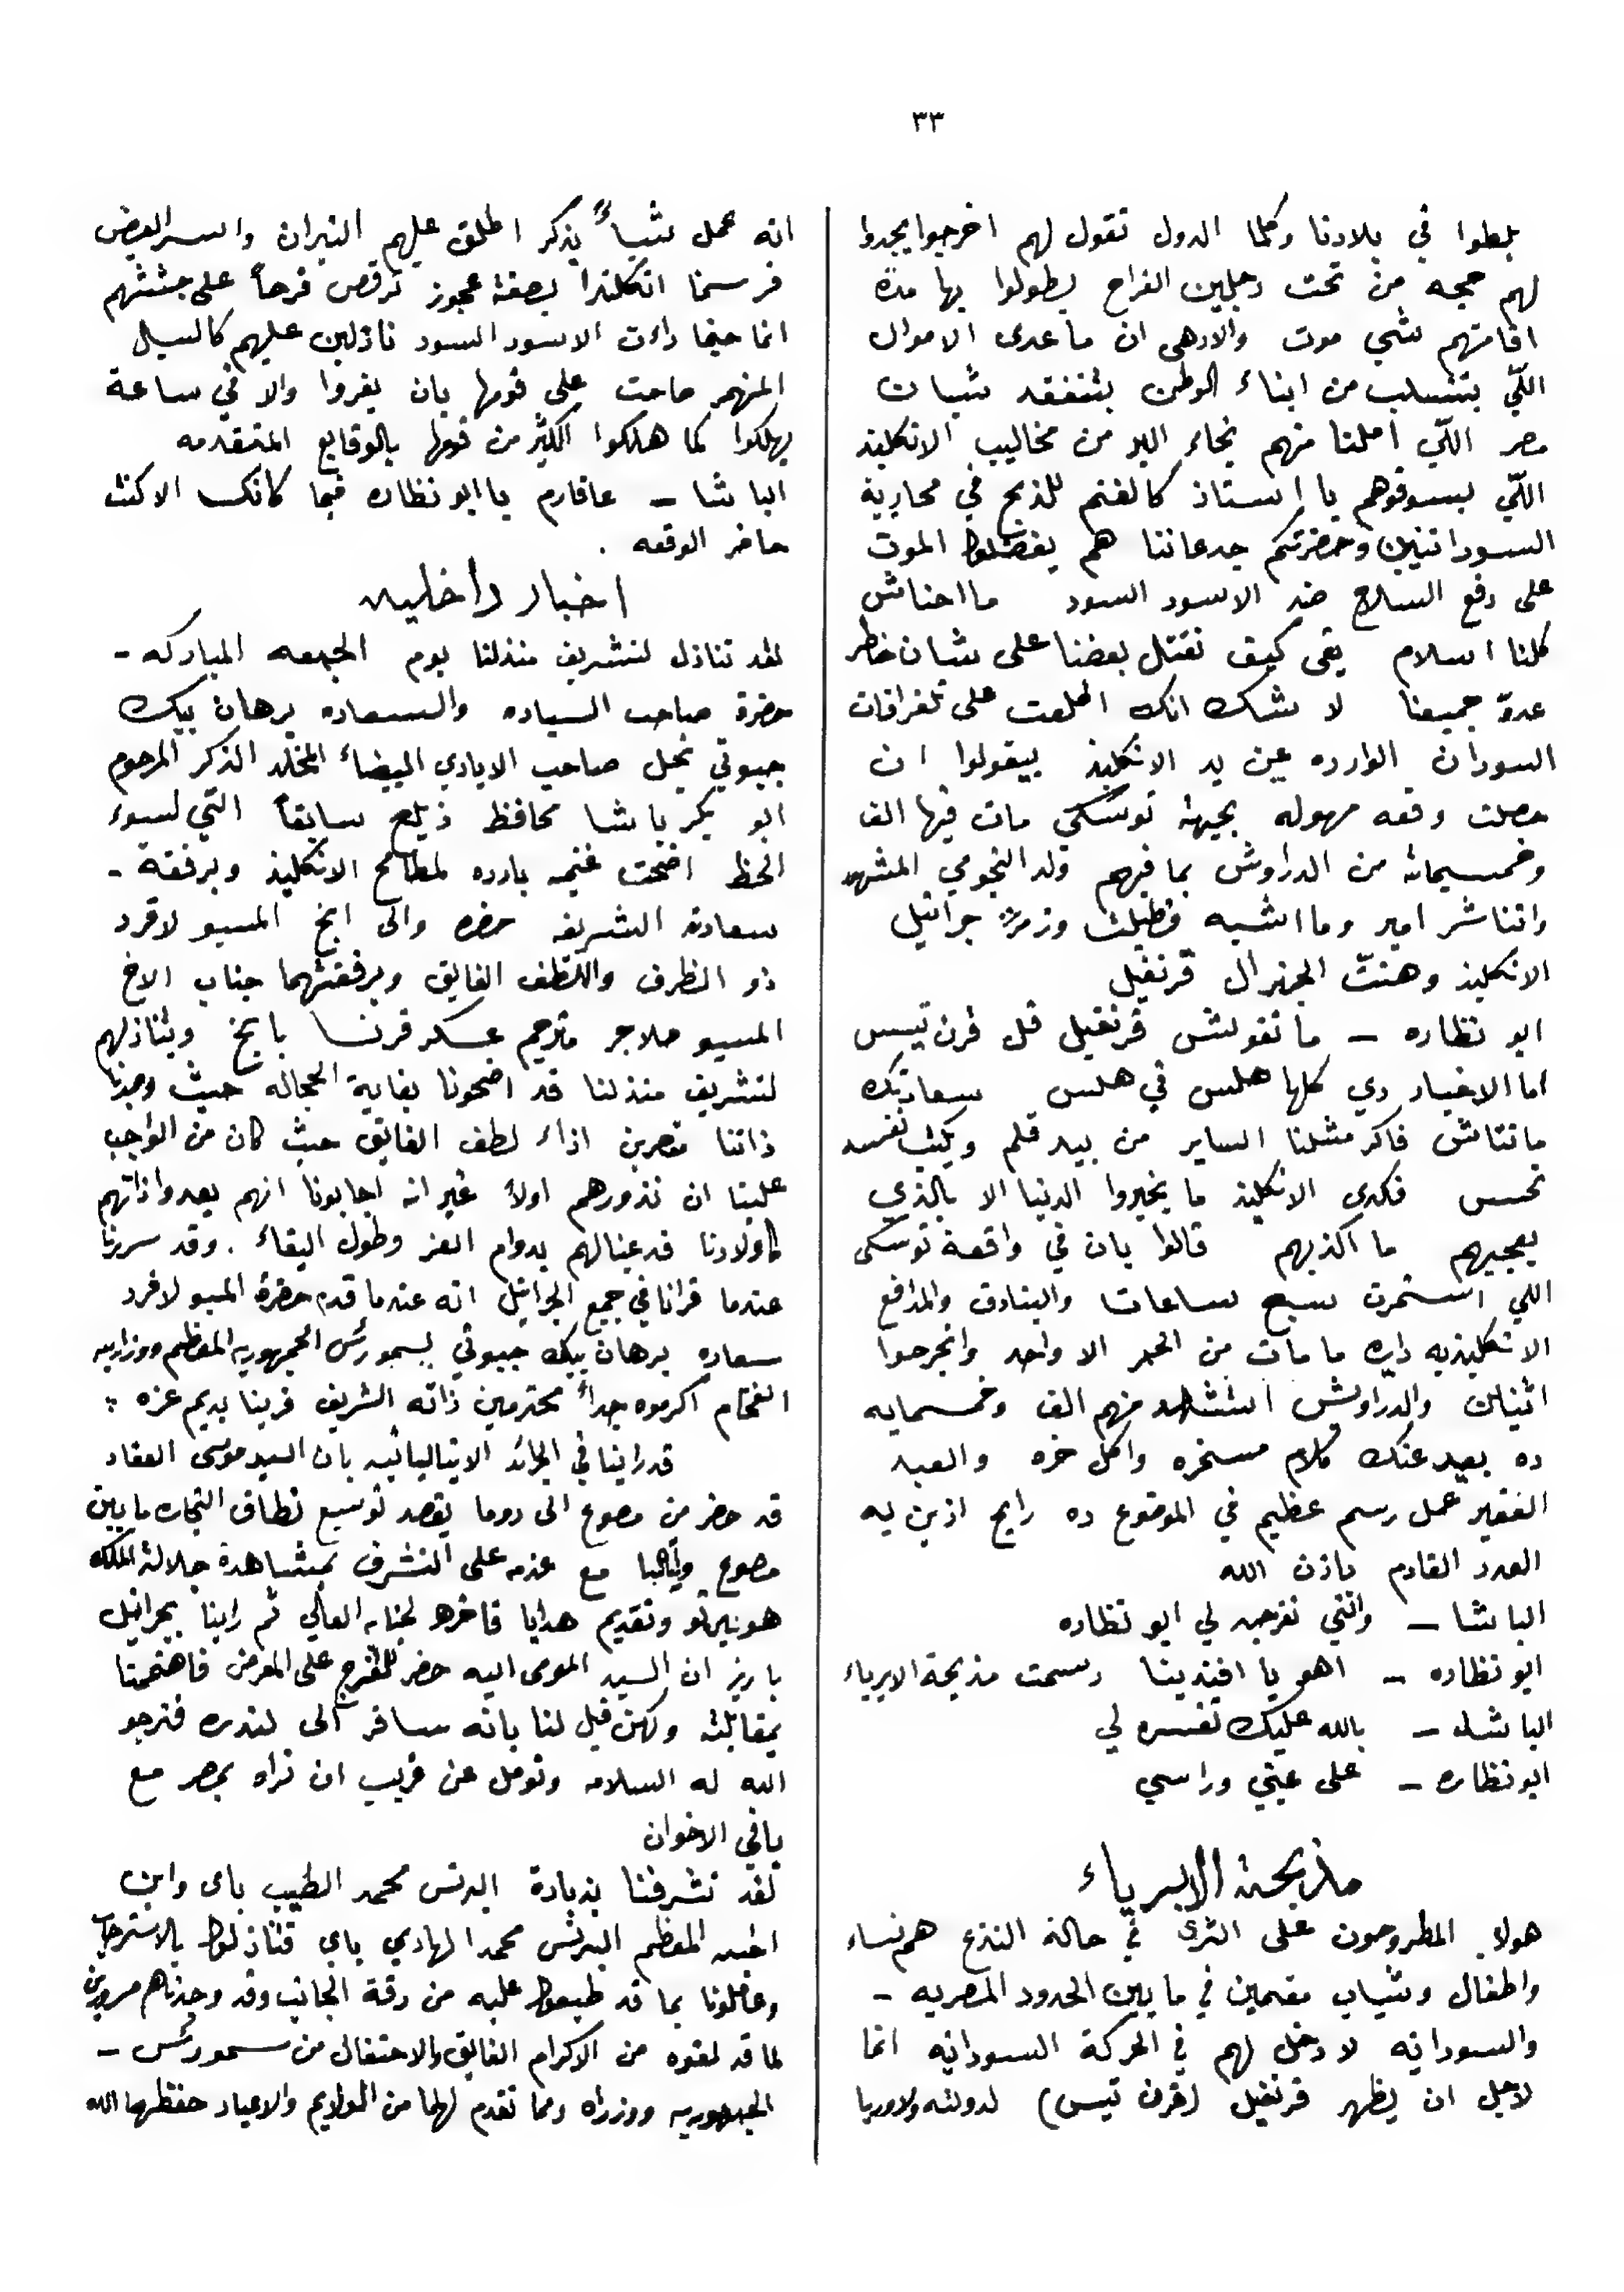 ٣٣
بلطوا في بلادنا وكلما الدول تقول لهم اخرجوا يجدوا
لهم حجه من تحت رجلين الفراح يطولوا بها مدة
اقامتهم شي موت والادهى ان ما عدى الاموال
اللّي بتنسلب من ابناء الوطن بتنفقد شبان
مصر اللّي املنا منهم نجاة البر من مخاليب الانكليز
اللّي بيسوقوهم يا استاذ كالغنم للذبح في محاربة
السودانيين وحضرتكم جدعاننا هم يفضلوا الموت
على رفع السلاح ضد الاسود السود ما احناش
كلنا اسلام بقى كيف نقتل بعضنا على شان خاطر
عدوّ جميعنا لا شك انك اطلعت على تلغرافات
السودان الوارده عن يد الانكليز بيقولوا ان
حصلت وقعه مهوله بجهة توسكي مات فيها الف
وخمسيماية من الدراوش بما فيهم ولد النجومي المشهور
واتناشر امير وما اشبه فطبلت وزمرت جرانيل
الانكليز وهنت الجنرال قرنفيل
ابو نظاره — ما تقولش قرنفيل قل قرن تيس
اما الاخبار دي كلها هلس في هلس سعادتك
ما نتاش فاكر مثلنا الساير من بيده قلم ويكتب نفسه
تحس فكدى الانكليز ما يخبروا الدنيا الا بالذي
يعجبهم ما اكذبهم قالوا بان في واقعة توسكى
اللي استمرت سبع ساعات والبنادق والمدافع
الانكليزيه دايره ما مات من الحمر الا واحد وانجرحوا
اثنين والدراويش استشهد منهم الف وخمسمايه
ده بعيد عنك كلام مسخره واكل خره والعبد
الفقير عمل رسم عظيم في الموضوع ده رايح ازين به
العدد القادم باذن الله
الباشا — وانتي تفرجه لي ابو نظاره
ابو نظاره — اهو يا افندينا رسمت مذبحة الابرياء
الباشا — بالله عليك تفسره لي
ابو نظاره — على عيني وراسي
مذبحة الابرياء
هولاء المطروحون على الثرى في حالة النزع هم نساء
واطفال وشياب مقيمين في ما بين الحدود المصريه —
والسودانيه لا دخل لهم في الحركة السودانيه انما
لاجل ان يظهر قرنفيل (قرن تيس) لدولته ولاوربا
انه عمل شيأً يذكر اطلق عليهم النيران والسر العيض
فرسمنا انكلترا بصفة عجوز ترقص فرحاً على جثثهم
انما حينما رات الاسود السود نازلين عليهم كالسيل
المنهمر صاحت على قومها بان يفروا والا في ساعة
يهلكوا كما هلكوا اكثر من قومها بالوقايع المتقدمه
الباشا — عافارم يا ابو نظاره فيما كانك الا كنت
حاضر الوقعه .
اخبار داخليه
لقد تنازل لتشريف منزلنا يوم الجمعه المباركه —
حضرة صاحب السياده والسعاده برهان بيك
جيبوتي نجل صاحب الايادي البيضاء المخلد الذكر المرحوم
ابو بكر باشا محافظ زيلع سابقاً التي لسوء
الحظ اضحت غنيمه بارده لمطامح الانكليز وبرفقة —
سعادته الشريفه حضرة والى ابخ المسيو لاقرد
ذو الظرف واللطف الفايق وبرفقتهما جناب الاخ
المسيو حلاجر مترجم عسكر فرنسا بابخ وبتنازلهم
لتشريف منزلنا قد اضحونا بغاية الخجاله حيث وجدنا
ذاتنا مقصرين ازاء لطف الفايق حيث كان من الواجب
علينا ان نزورهم اولاً غير انه اجابونا انهم يعدوا ذاتهم
كاولادنا فدعينالهم بدوام العز وطول البقاء . وقد سررنا
عندما قرانا في جميع الجرانيل انه عندما قدم حضرة المسيو لاقرد
سعادة برهان بيك جيبوتي لسمو رئس الجمهوريه المعظم ووزرايه
الفخام اكرموه جداً محترمين ذاته الشريف فربنا يديم عزه :
قد راينا في الجرائد الايتاليانيه بان السيد موسى العقاد
قد حضر من مصوع الى روما بقصد توسيع نطاق التجارة ما بين
مصوع وايتاليا مع عزمه على التشرف بمشاهدة جلالة الملك
هونبرتو وتقديم هدايا فاخره لجنابه العالي ثم راينا بجرانيل
باريز ان السيد المومى اليه حضر للتفرج على المعرض فاهتممنا
بمقابلته ولكن قيل لنا بانه سافر الى لندره فنرجو
الله له السلامه ونومل عن قريب ان نراه بمصر مع
باقي الاخوان
لقد تشرفنا بزيارة البرنس محمد الطيب باى وابن
اخيه المعظم البرنس محمد الهادي باي فتنازلوا بالاسترحاب
وعاملونا بما قد طبعوا عليه من رقة الجانب وقد وجدناهم مسرورين
لما قد لقوه من الاكرام الفائق والاحتفال من سمو رئس —
الجمهوريه ووزراه ومما تقدم لهما من الولايم والاعياد حفظهما الله